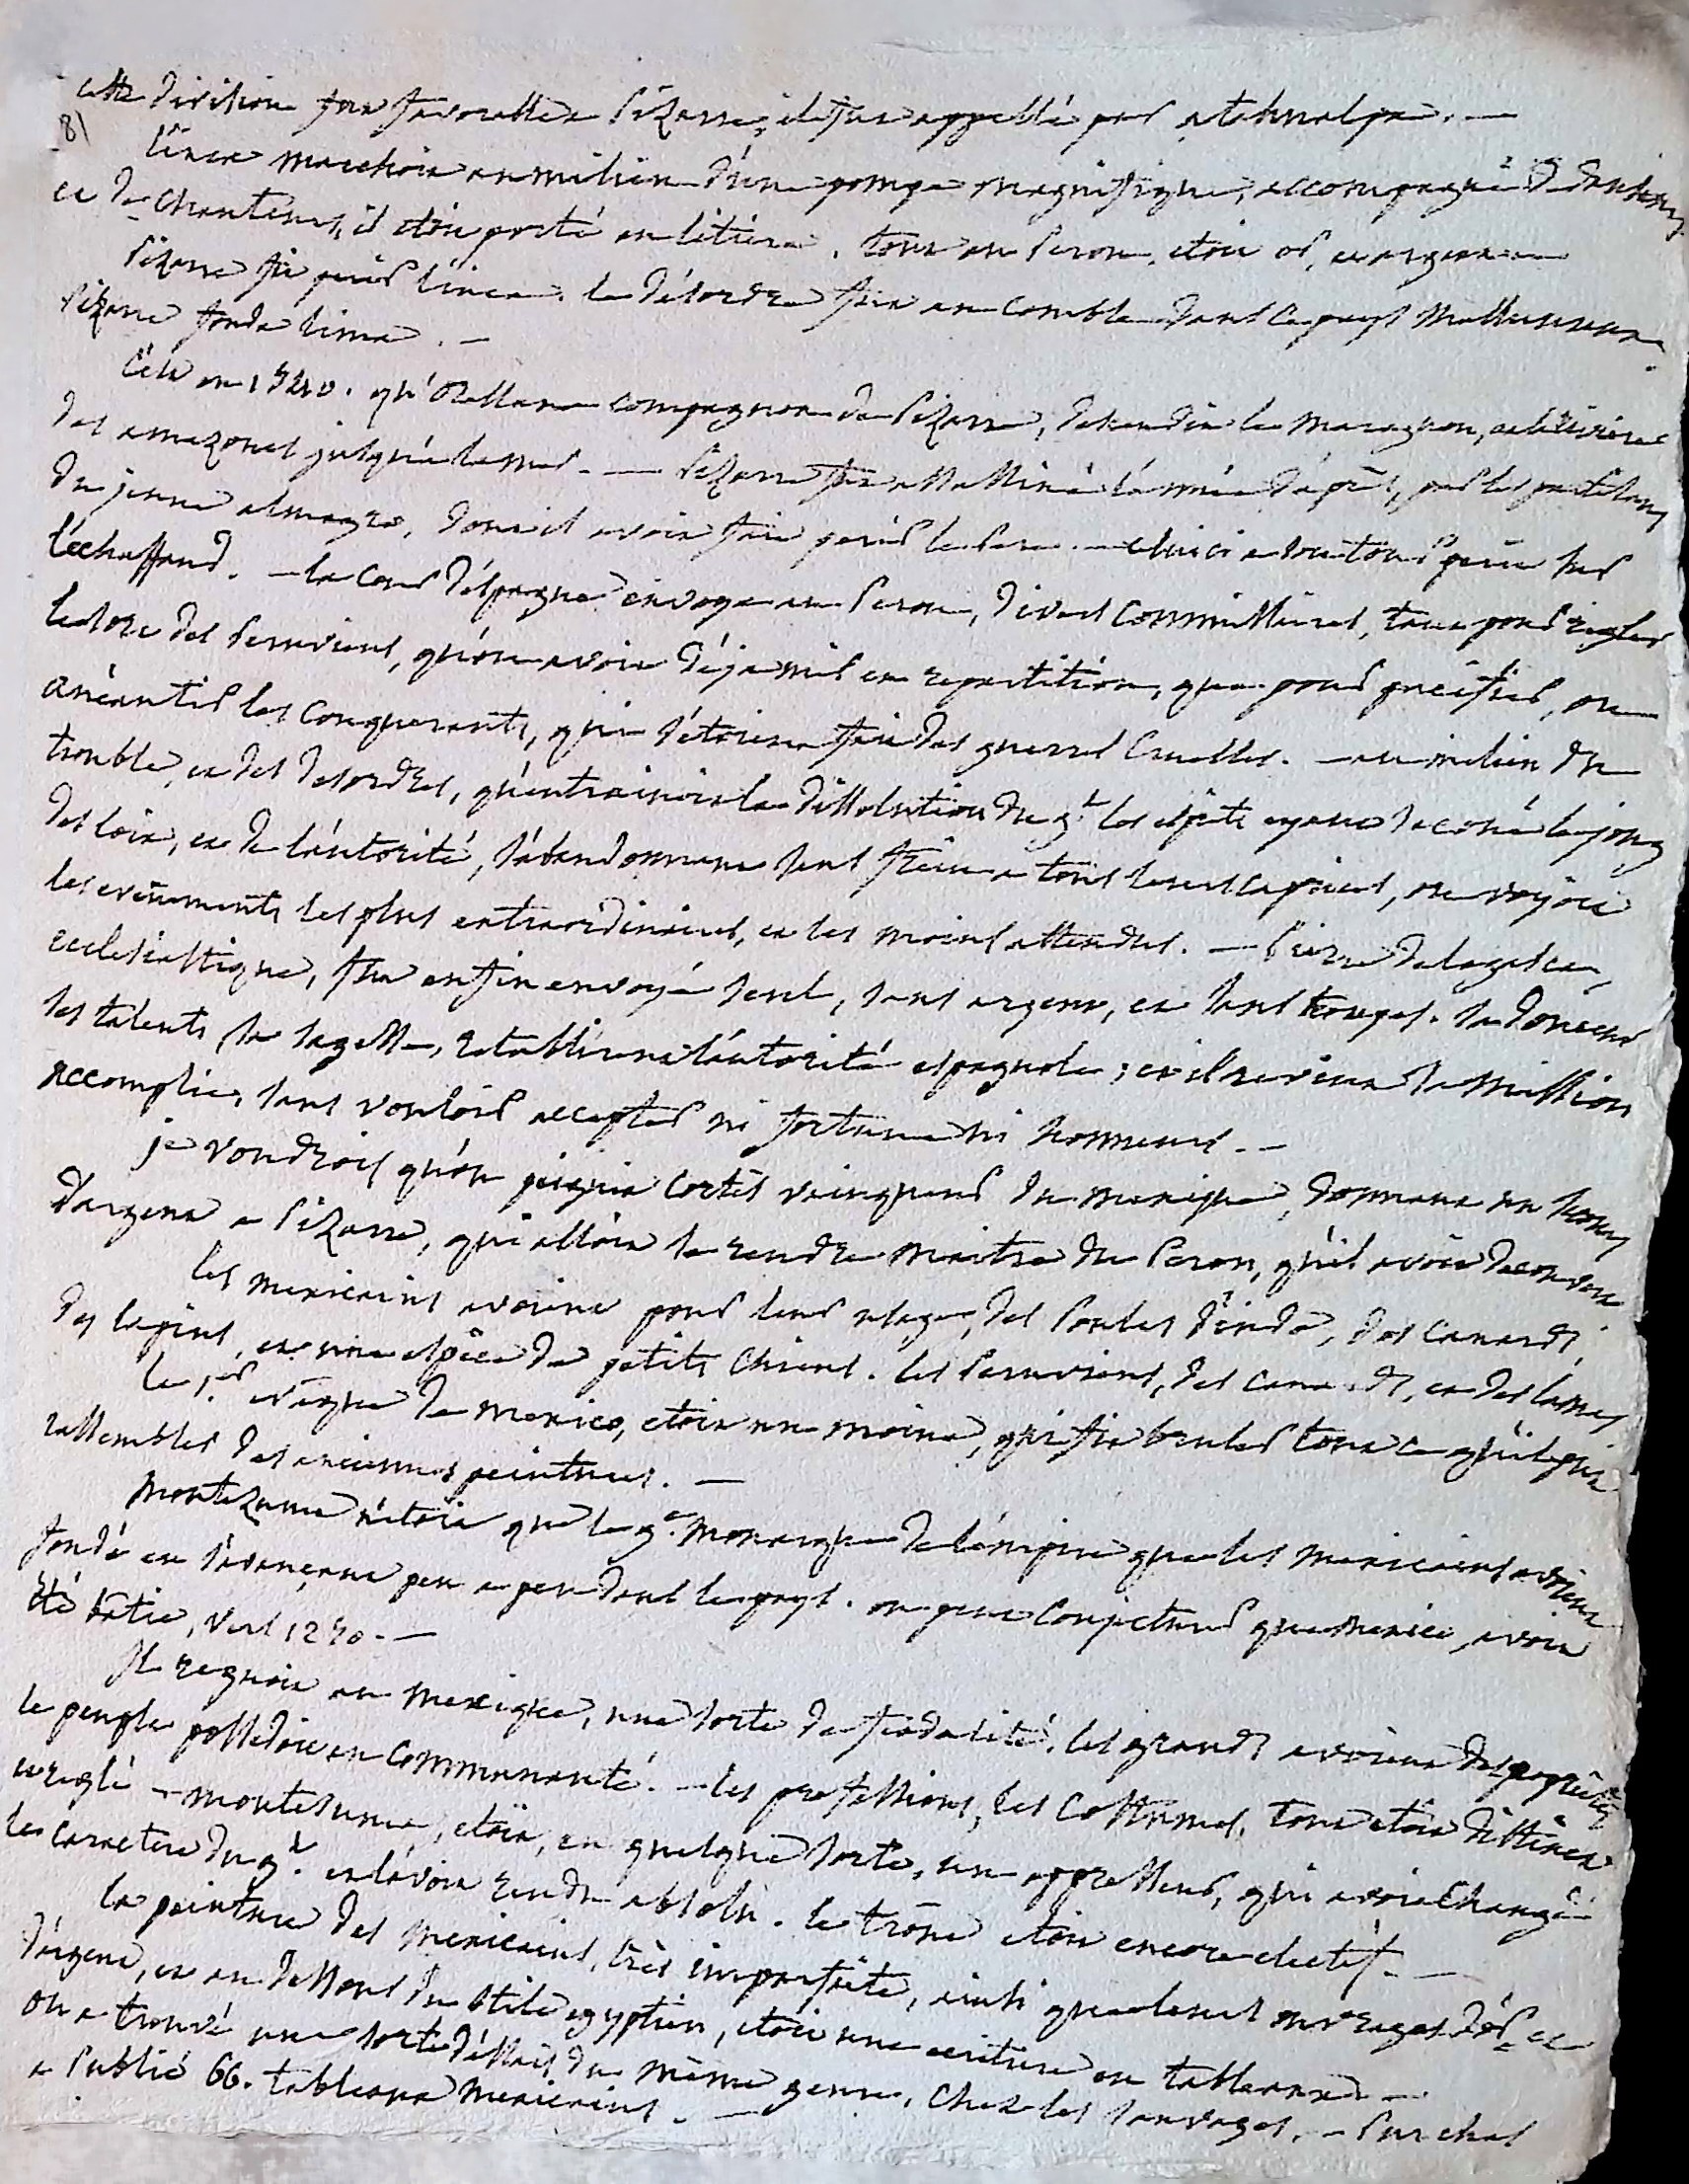 cette division fut favorable a Pizarre, il fut appellé par atahualpa. —
81
l'inca marchoit au milieu d'une pompe magnifique, accompagné de danseurs
et de chanteurs, il etoit porté en litiere. tout au Perou, etoit or, et argent —
Pizarre fit perir l'inca. le désordre fut au comble dans ce pays malheureux.
Pizarre fonda lima. —
C'est en 1540. qu'Orellana compagnon de Pizarre, descendit le maragnon, ou la riviere
des amazones jusqu'a la mer. — Pizarre fut assassiné l'année d'après, par les partisans
du jeune almagro, dont il avoit fait perir le Pere. — celui ci a son tour perit sur
l'échaffaud. — la cour d'espagne envoya au Perou, divers Commissaires, tant pour régler
le sort des Peruviens, qu'on avoit déja mis en repartition, que pour pacifier, ou
anéantir les conquerants, qui s'étoient fait des guerres cruelles. — au milieu du
trouble, et des desordres, qu'entrainoit la dissolution du gt. les esprits ayant secoué le joug
des loix, et de l'autorité, s'abandonnant sans frein a tous leurs caprices, on voyoit
les evénements les plus extraordinaires, et les moins attendus. — Pierre de la gasca,
ecclesiastique, fut enfin envoyé seul, sans argent, et sans troupes. sa douceur
ses talents sa sagesse, retablirent l'autorité espagnole; et il revint sa mission
accomplie, sans vouloir accepter ni fortune ni honneurs. —
je voudrois qu'on peignit Cortès vainqueur du mexique, donnant un secours
d'argent a Pizarre, qui alloit se rendre maitre du Perou, qu'il avoit decouvert
les mexicains avoient pour leur usage, des Poules d'inde, des canards,
des lapins, et une espèce de petits chiens. les Peruviens, des canards, et des lamas
le 1er. evêque de mexico, etoit un moine, qui fit bruler tout ce qu'il put
rassembler des anciennes peintures. —
Montezuma n'étoit que le 9e. monarque de l'empire que les mexicains avoient
fondé en s'avançant peu a peu dans le pays. on peut conjecturer que mexico, avoit
été bâtie, vers 1250. —
Il regnoit au mexique, une sorte de féodalité. les grands avoient des propriétés
le peuple possedoit en communauté. — les professions, les costumes, tout etoit distinct
et reglé — montesuma, etoit, en quelque sorte, un oppresseur, qui avoit changé
le caractere du gt. et l'avoit rendu absolu. le trône etoit encore electif. —
la peinture des mexicains, très imparfaite, ainsi que leurs ouvrages d'or et
d'argent, et au dessous du stile egyptien, etoit une ecriture en tableaux —
on a trouvé une sorte d'essais du même genre, chez les sauvages. — Purchas
a Publié 66. tableaux mexicains. —